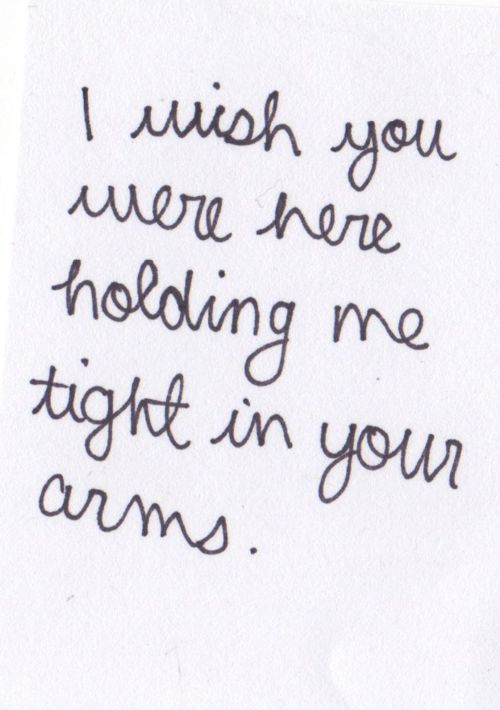 I wish you
were here
holding me
tight in your
arms.